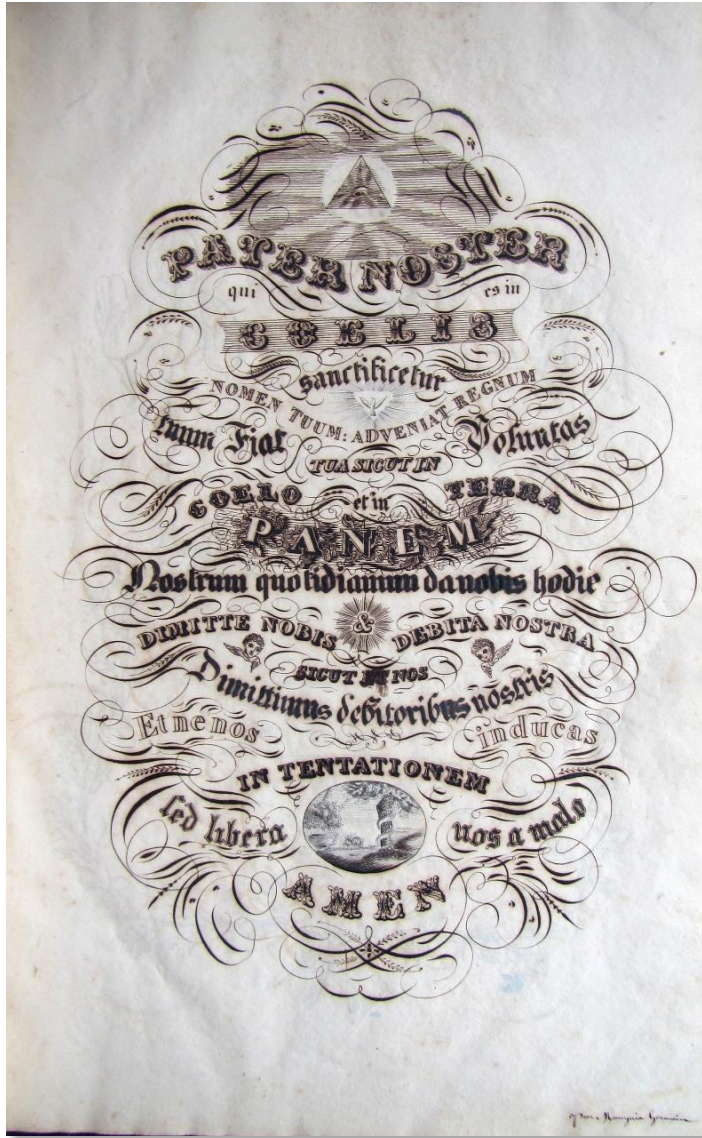 PATER NOSTER
qui es in
COELIS
sanctificetur
NOMEN TUUM: ADVENIAT REGNUM
tuum Fiat Voluntas
TUA SICUT IN
COELO et in TERRA
PANEM
Nostrum quotidianum da nobis hodie
&
DIMITTE NOBIS DEBITA NOSTRA
SICUT ET NOS
Dimittimus debitoribus nostris
Et ne nos inducas
IN TENTATIONEM
sed libera nos a malo
AMEN